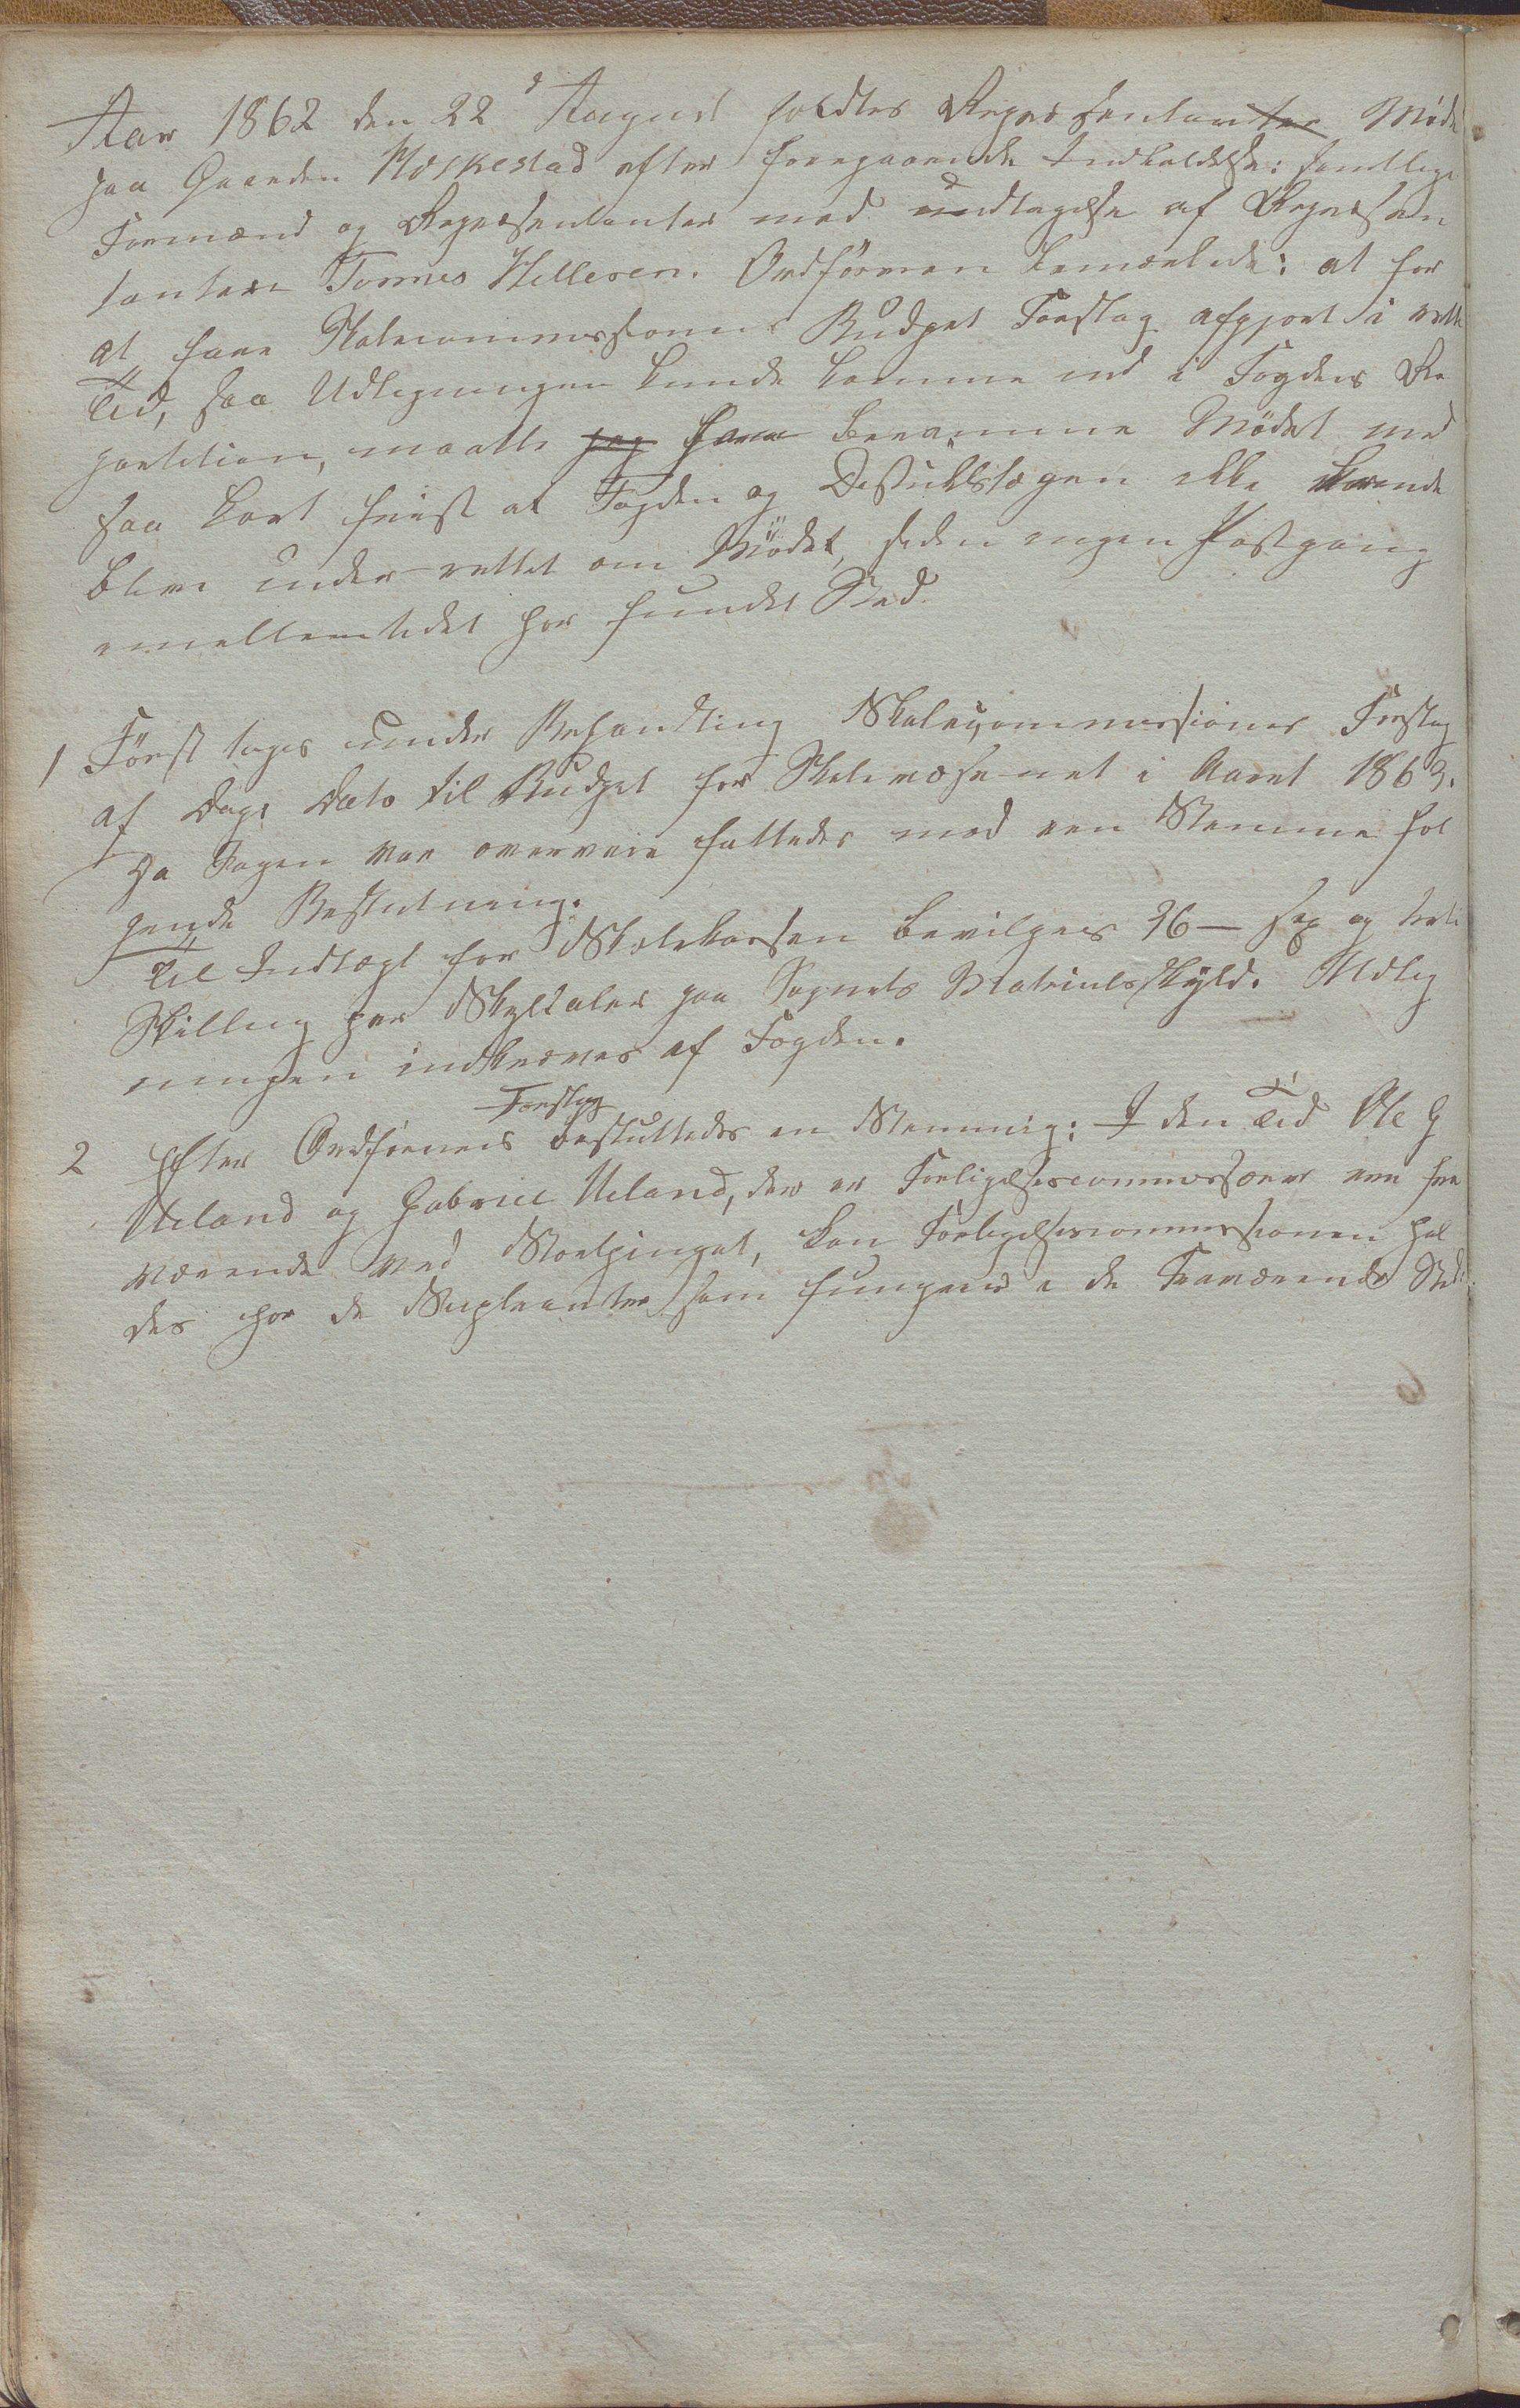 Aar 1862 den 22 August holdtes Repræsentanter Møde
paa Gaarden Heskestad efter foregaaende Indkaldelse: samtlige
Formænd og Repræsentanter med undtagelse af Repræsen
tantern Tonnes Hillesen. Ordføreren bemærkede: at for
at faae Skolecommissions Budget Forslag afgjort i rette
Tid, saa Udligningen kunde komme ind i Fogdens Re
partition, maatte jeg have berammme Mødet med
saa kort frist at Fogden og Destriktslægen ikke kunde
blive under rettet om Mødet, siden ingen Postgang
imellemtidet har fundet Sted
1 Først toges under Behandling Skolecommissions Forslag
af Dags Dato til Budget for Skolevæsenet i Aaret 1863.
Da Sagen var overveie fattedes med een Stemme føl
gende Beslutning.
Til Indtægt for Skolekassen bevilges 36 — sex og treti
Skilling per Skyldaler paa Sognets Matriculskyld. Udlig
ningen indkræves af Fogden.
Forslag
2 Efter Ordførerens besluttedes en Stemmig: I den Tid Ole G
Ueland og Gabriel Ueland, der er Forligelsescommissærer ere fra
værende ved Storthinget, kan Forligelsescommissionen hol
des hos de Supleanter som fungerer i de Fraværendes Sted